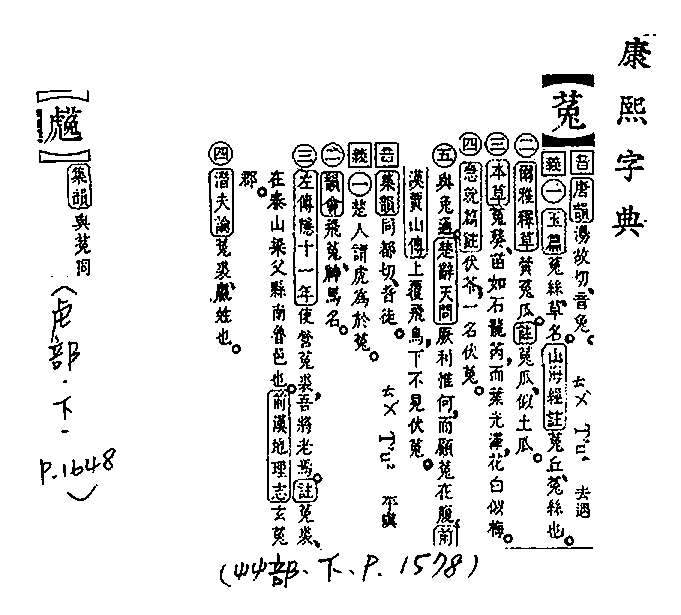 康熙字典
菟
音 唐韻 湯故切,音兔。 ㄊㄨ T'u⁴ 去遇
義 ㊀玉篇 菟絲,草名。山海經註 菟丘,菟絲也。
㊁爾雅釋草 黃菟瓜註 菟瓜,似土瓜。
㊂本草 菟葵,苗如石龍芮,而葉光澤,花白似梅。
㊃急就篇註 伏苓,一名伏菟。
㊄與兔通。楚辭天問 厥利惟何,而顧菟在腹。前
漢賈山傳 上覆飛鳥,下不見伏菟。
音 集韻 同都切,音徒。 ㄊㄨ T'u² 平虞
義 ㊀楚人謂虎為於菟。
㊁韻會 飛菟,神馬名。
㊂左傳隱十一年 使營菟裘,吾將老焉。註 菟裘,
在泰山梁父縣南魯邑也。前漢地理志 玄菟
郡。
㊃潛夫論 菟裘,嬴姓也。
(艸部、下、P. 1578)
虪
集韻 與菟同
(虍部·下·
P.1648)